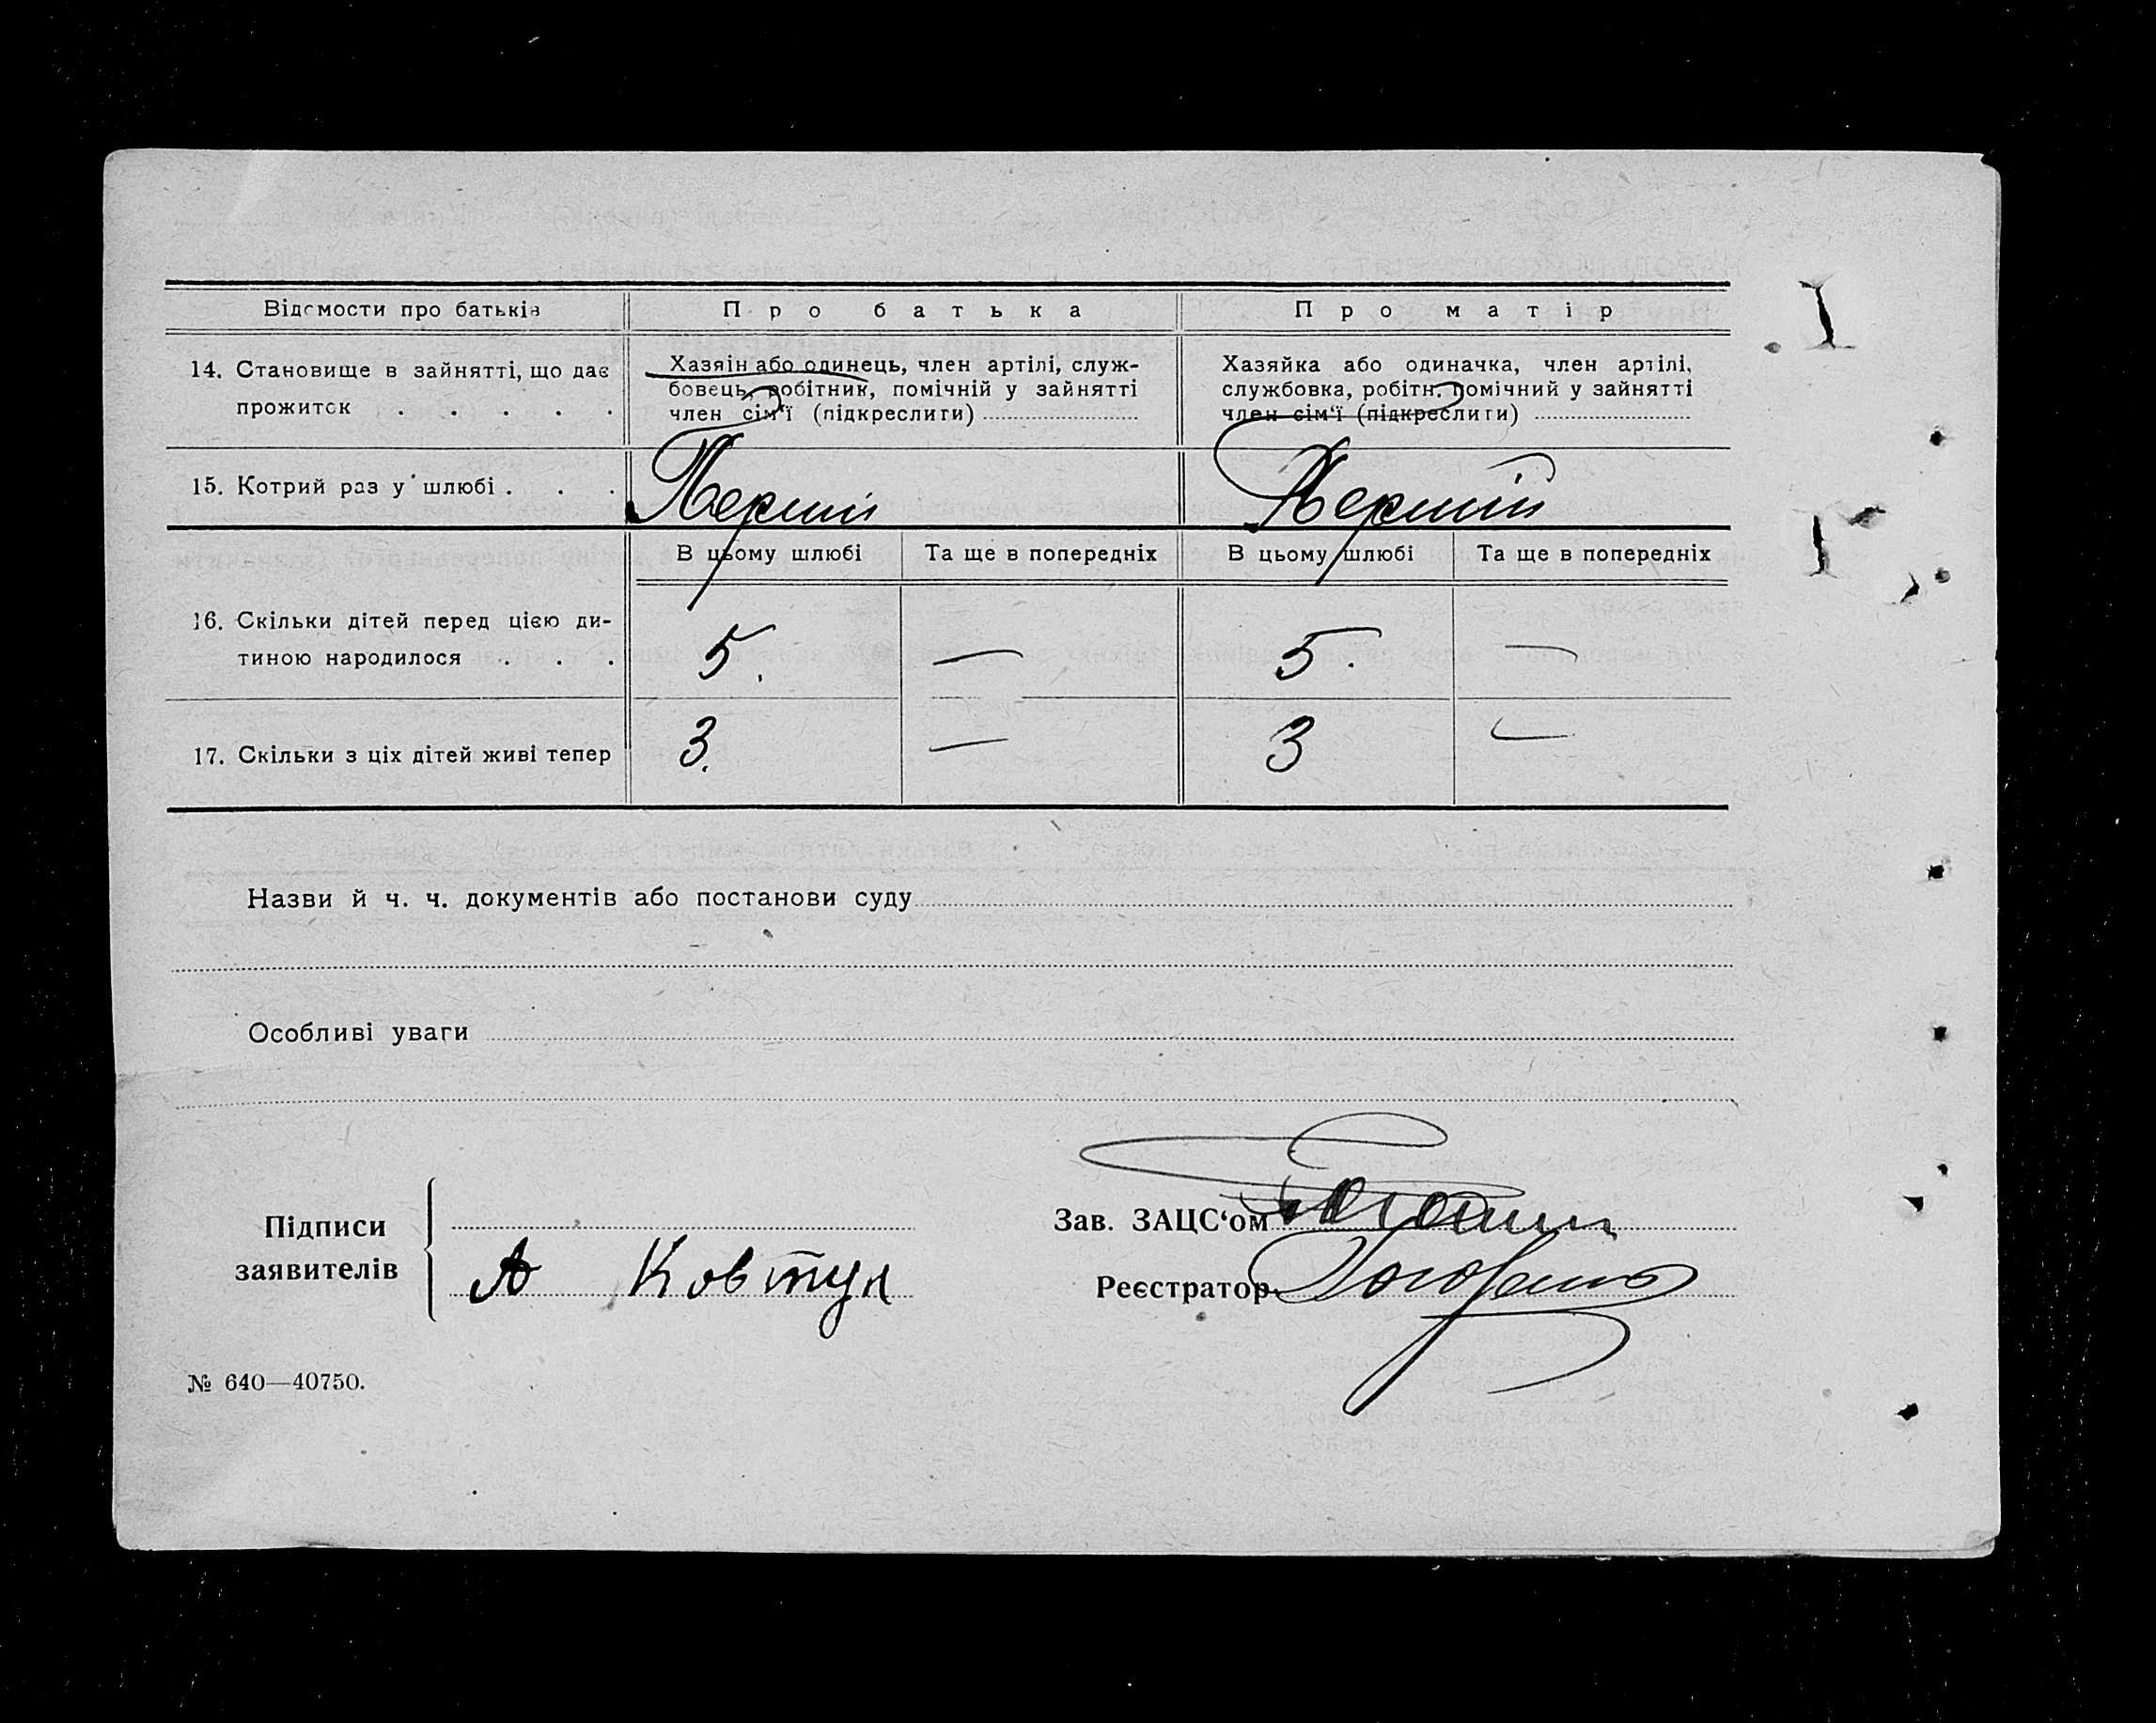 Відомости про батьків
Про батька
Про матір
14. Становище в зайнятті, що дає
прожиток . . . . .
Хазяін або одинець, член артілі, служ-
бовець, робітник, помічній у зайнятті
член сім‘ї (підкреслити)
Хазяйка або одиначка, член артілі,
службовка, робітн. помічний у зайнятті
член сім‘ї (підкреслити)
15. Котрий раз у шлюбі . . .
Перший
Перший
В цьому шлюбі
Та ще в попередніх
В цьому шлюбі
Та ще в попередніх
16. Скільки дітей перед цією ди-
тиною народилося . . .
5. — 5. —
17. Скільки з ціх дітей живі тепер
3. — 3 —
Назви й ч. ч. документів або постанови суду
Особливі уваги
Підписи
заявителів
А Ковтун
Зав. ЗАЦС‘ом
Реєстратор
№ 640—40750.